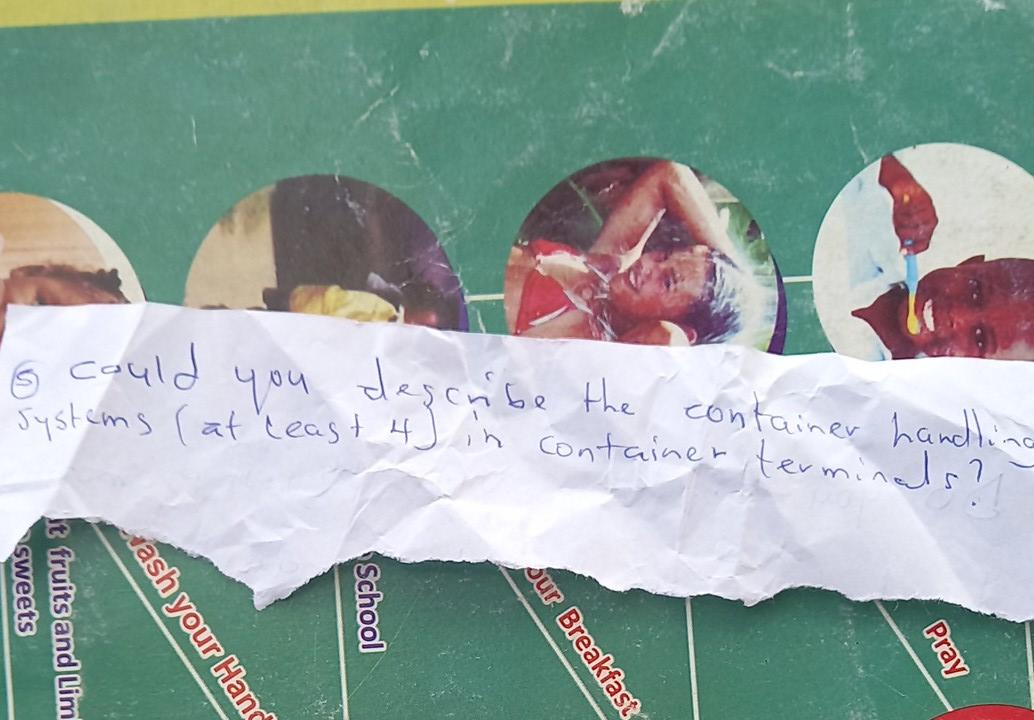 ⑤ Could you describe the container handling
systems (at least 4) in container terminals?
fruits and Lim
sweets
Wash your Hand
School
our Breakfast
Pray